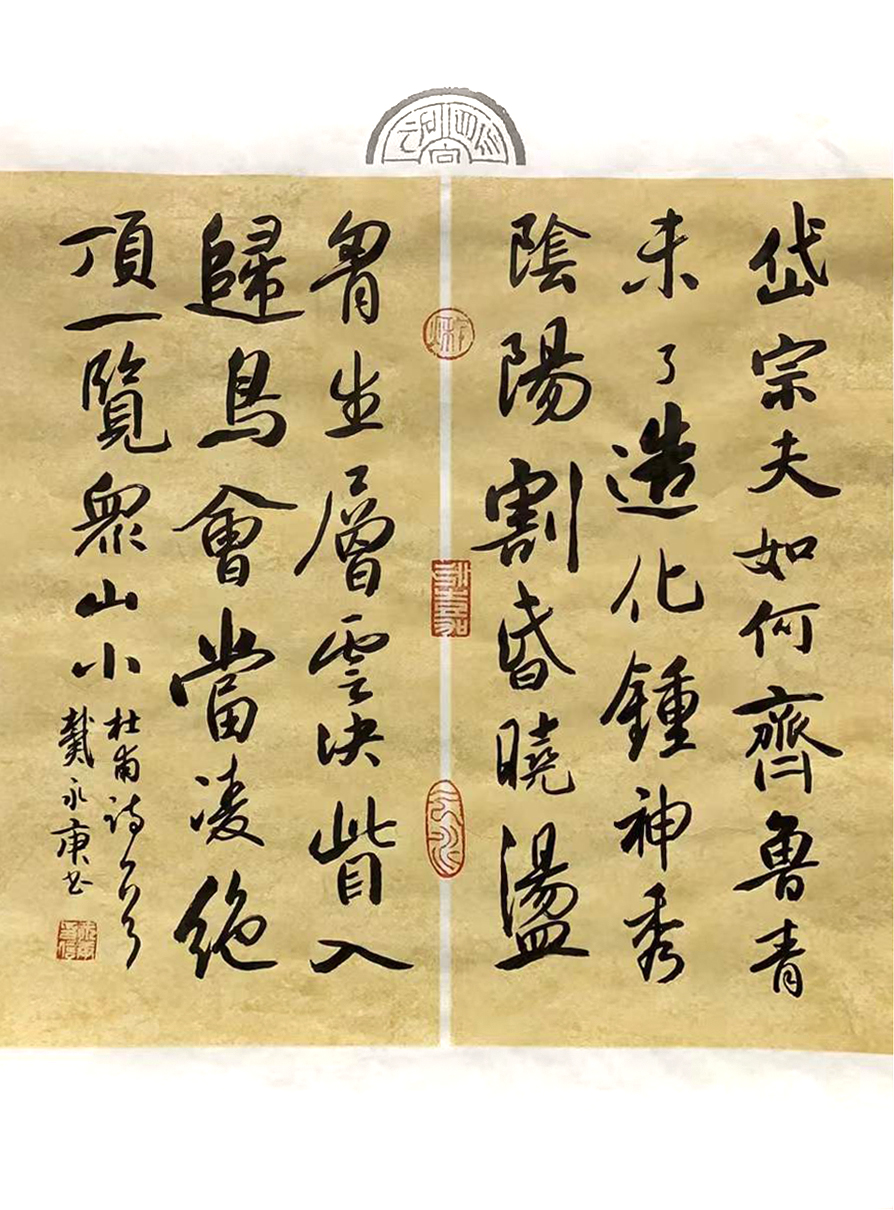 岱宗夫如何齊魯青
未了造化鍾神秀
陰陽割昏曉盪
胷生層雲決眥入
歸鳥會當凌絕
頂一覽眾山小
杜甫詩一首
戴永庚书